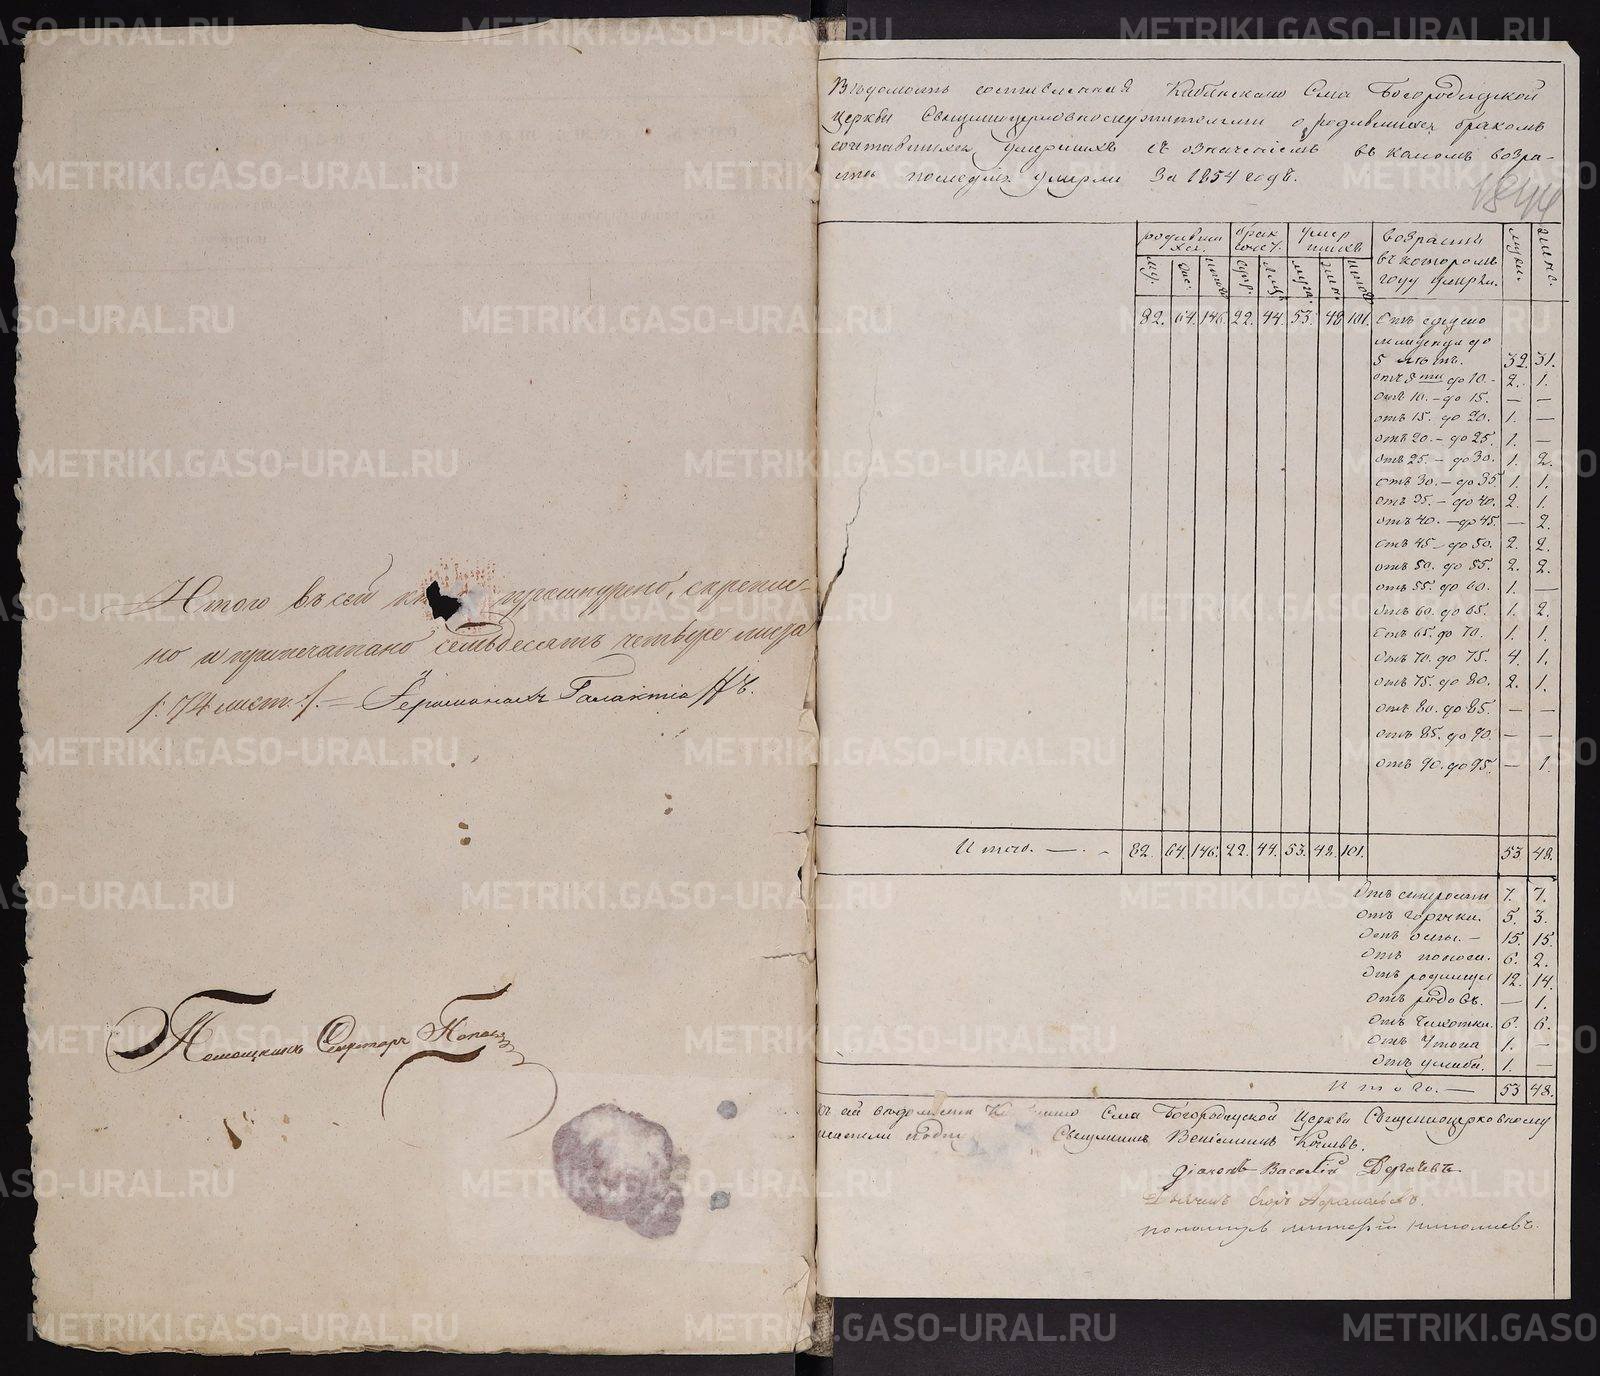 Итого въ сей прошнуровано, скрепле-
но и припечатано семьдесятъ четыре листа
/: 74 лист. :/ — Іеромонахъ Галактіонъ.
Помощникъ Секретаря Поповъ
Ведомость составленная Кабанскаго Села Богородицкой
Церкви Священноцерковнослужителями о родившихся бракомъ
сочетавшихся умершихъ съ означеніемъ въ какомъ возра-
сте последніе умерли За 1854 годъ.
родивши брак умер возрасты мужи. женс.
хся. сочет. шихъ въ которомъ
му. жес. итого супр. лицъ муж. жен. итого году умерли.
82. 64. 146. 22. 44. 53. 48. 101. Отъ сущаго
младенца до
5 летъ. 32. 31.
отъ 5 ти до 10. - 2. 1.
отъ 10. - до 15. — —
отъ 15. до 20. 1. —
отъ 20. - до 25. 1. —
отъ 25. - до 30. 1. 2.
отъ 30. - до 35. 1. 1.
отъ 35. - до 40. 2. 1.
отъ 40. - до 45. — 2.
отъ 45 - до 50. 2. 2.
отъ 50. до 55. 2. 2.
отъ 55. до 60. 1. —
отъ 60. до 65. 1. 2.
отъ 65. до 70. 1. 1.
отъ 70. до 75. 4. 1.
отъ 75. до 80. 2. 1.
отъ 80. до 85. — —
отъ 85. до 90. — —
отъ 90. до 95. — 1.
Итого. — 82. 64. 146. 22. 44. 53. 48. 101. 53. 48.
Отъ старости 7. 7.
отъ горячки. 5. 3.
Отъ оспы. — 15. 15.
Отъ поноса. 6. 2.
Отъ родимца 12. 14.
отъ родовъ. — 1.
отъ чахотки. 6. 6.
отъ 1. —
Отъ 1. —
Итого. — 53 48.
къ сей ведомости Села Богородицкой Церкви Священноцерковнослу
жители Священникъ Веніаминъ
діаконъ Василій Дергачевъ
Дьячекъ
пономарь
METRIKI.GASO-URAL.RU